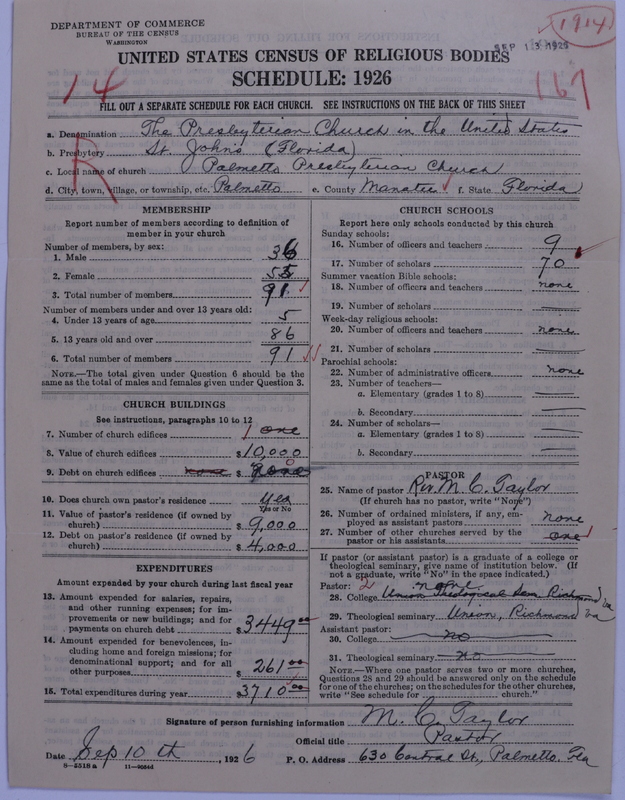 DEPARTMENT OF COMMERCE
BUREAU OF THE CENSUS
WASHINGTON
1914
SEP 13 1926
UNITED STATES CENSUS OF RELIGIOUS BODIES
SCHEDULE: 1926
14
167
FILL OUT A SEPARATE SCHEDULE FOR EACH CHURCH. SEE INSTRUCTIONS ON THE BACK OF THIS SHEET
R
a. Denomination The Presbyterian Church in the United States
b. Presbytery St. Johns (Florida)
c. Local name of church Palmetto Presbyterian Church
d. City, town, village, or township, etc. Palmetto e. County Manatee f. State Florida
MEMBERSHIP
Report number of members according to definition of
member in your church
Number of members, by sex:
1. Male 36
2. Female 55
3. Total number of members 91
Number of members under and over 13 years old:
4. Under 13 years of age 5
5. 13 years old and over 86
6. Total number of members 91
NOTE.—The total given under Question 6 should be the
same as the total of males and females given under Question 3.
CHURCH BUILDINGS
See instructions, paragraphs 10 to 12
7. Number of church edifices 1 one
8. Value of church edifices $10,000
9. Debt on church edifices none $ 0
10. Does church own pastor's residence yes
Yes or No
11. Value of pastor's residence (if owned by
church) $ 9,000
12. Debt on pastor's residence (if owned by
church) $ 4,000
EXPENDITURES
Amount expended by your church during last fiscal year
13. Amount expended for salaries, repairs,
and other running expenses; for im-
provements or new buildings; and for
payments on church debt $3449 00
14. Amount expended for benevolences, in-
cluding home and foreign missions; for
denominational support; and for all
other purposes $ 261 00
15. Total expenditures during year $3710 00
CHURCH SCHOOLS
Report here only schools conducted by this church
Sunday schools:
16. Number of officers and teachers 9
17. Number of scholars 70
Summer vacation Bible schools:
18. Number of officers and teachers none
19. Number of scholars
Week-day religious schools:
20. Number of officers and teachers none
21. Number of scholars
Parochial schools:
22. Number of administrative officers none
23. Number of teachers—
a. Elementary (grades 1 to 8)
b. Secondary
24. Number of scholars—
a. Elementary (grades 1 to 8)
b. Secondary
PASTOR
25. Name of pastor Rev. M. C. Taylor
(If church has no pastor, write "None")
26. Number of ordained ministers, if any, em-
ployed as assistant pastors none
27. Number of other churches served by the
pastor or his assistants one 1
If pastor (or assistant pastor) is a graduate of a college or
theological seminary, give name of institution below. (If
not a graduate, write "No" in the space indicated.)
Pastor: 2 none
28. College Union Theological Sem. Richmond Va
29. Theological seminary Union, Richmond Va
Assistant pastor:
30. College no
31. Theological seminary no
NOTE.—Where one pastor serves two or more churches,
Questions 28 and 29 should be answered only on the schedule
for one of the churches; on the schedules for the other churches,
write "See schedule for church."
Signature of person furnishing information M. C. Taylor
Official title Pastor
Date Sep 10 th, 1926 P. O. Address 630 Central St., Palmetto, Fla